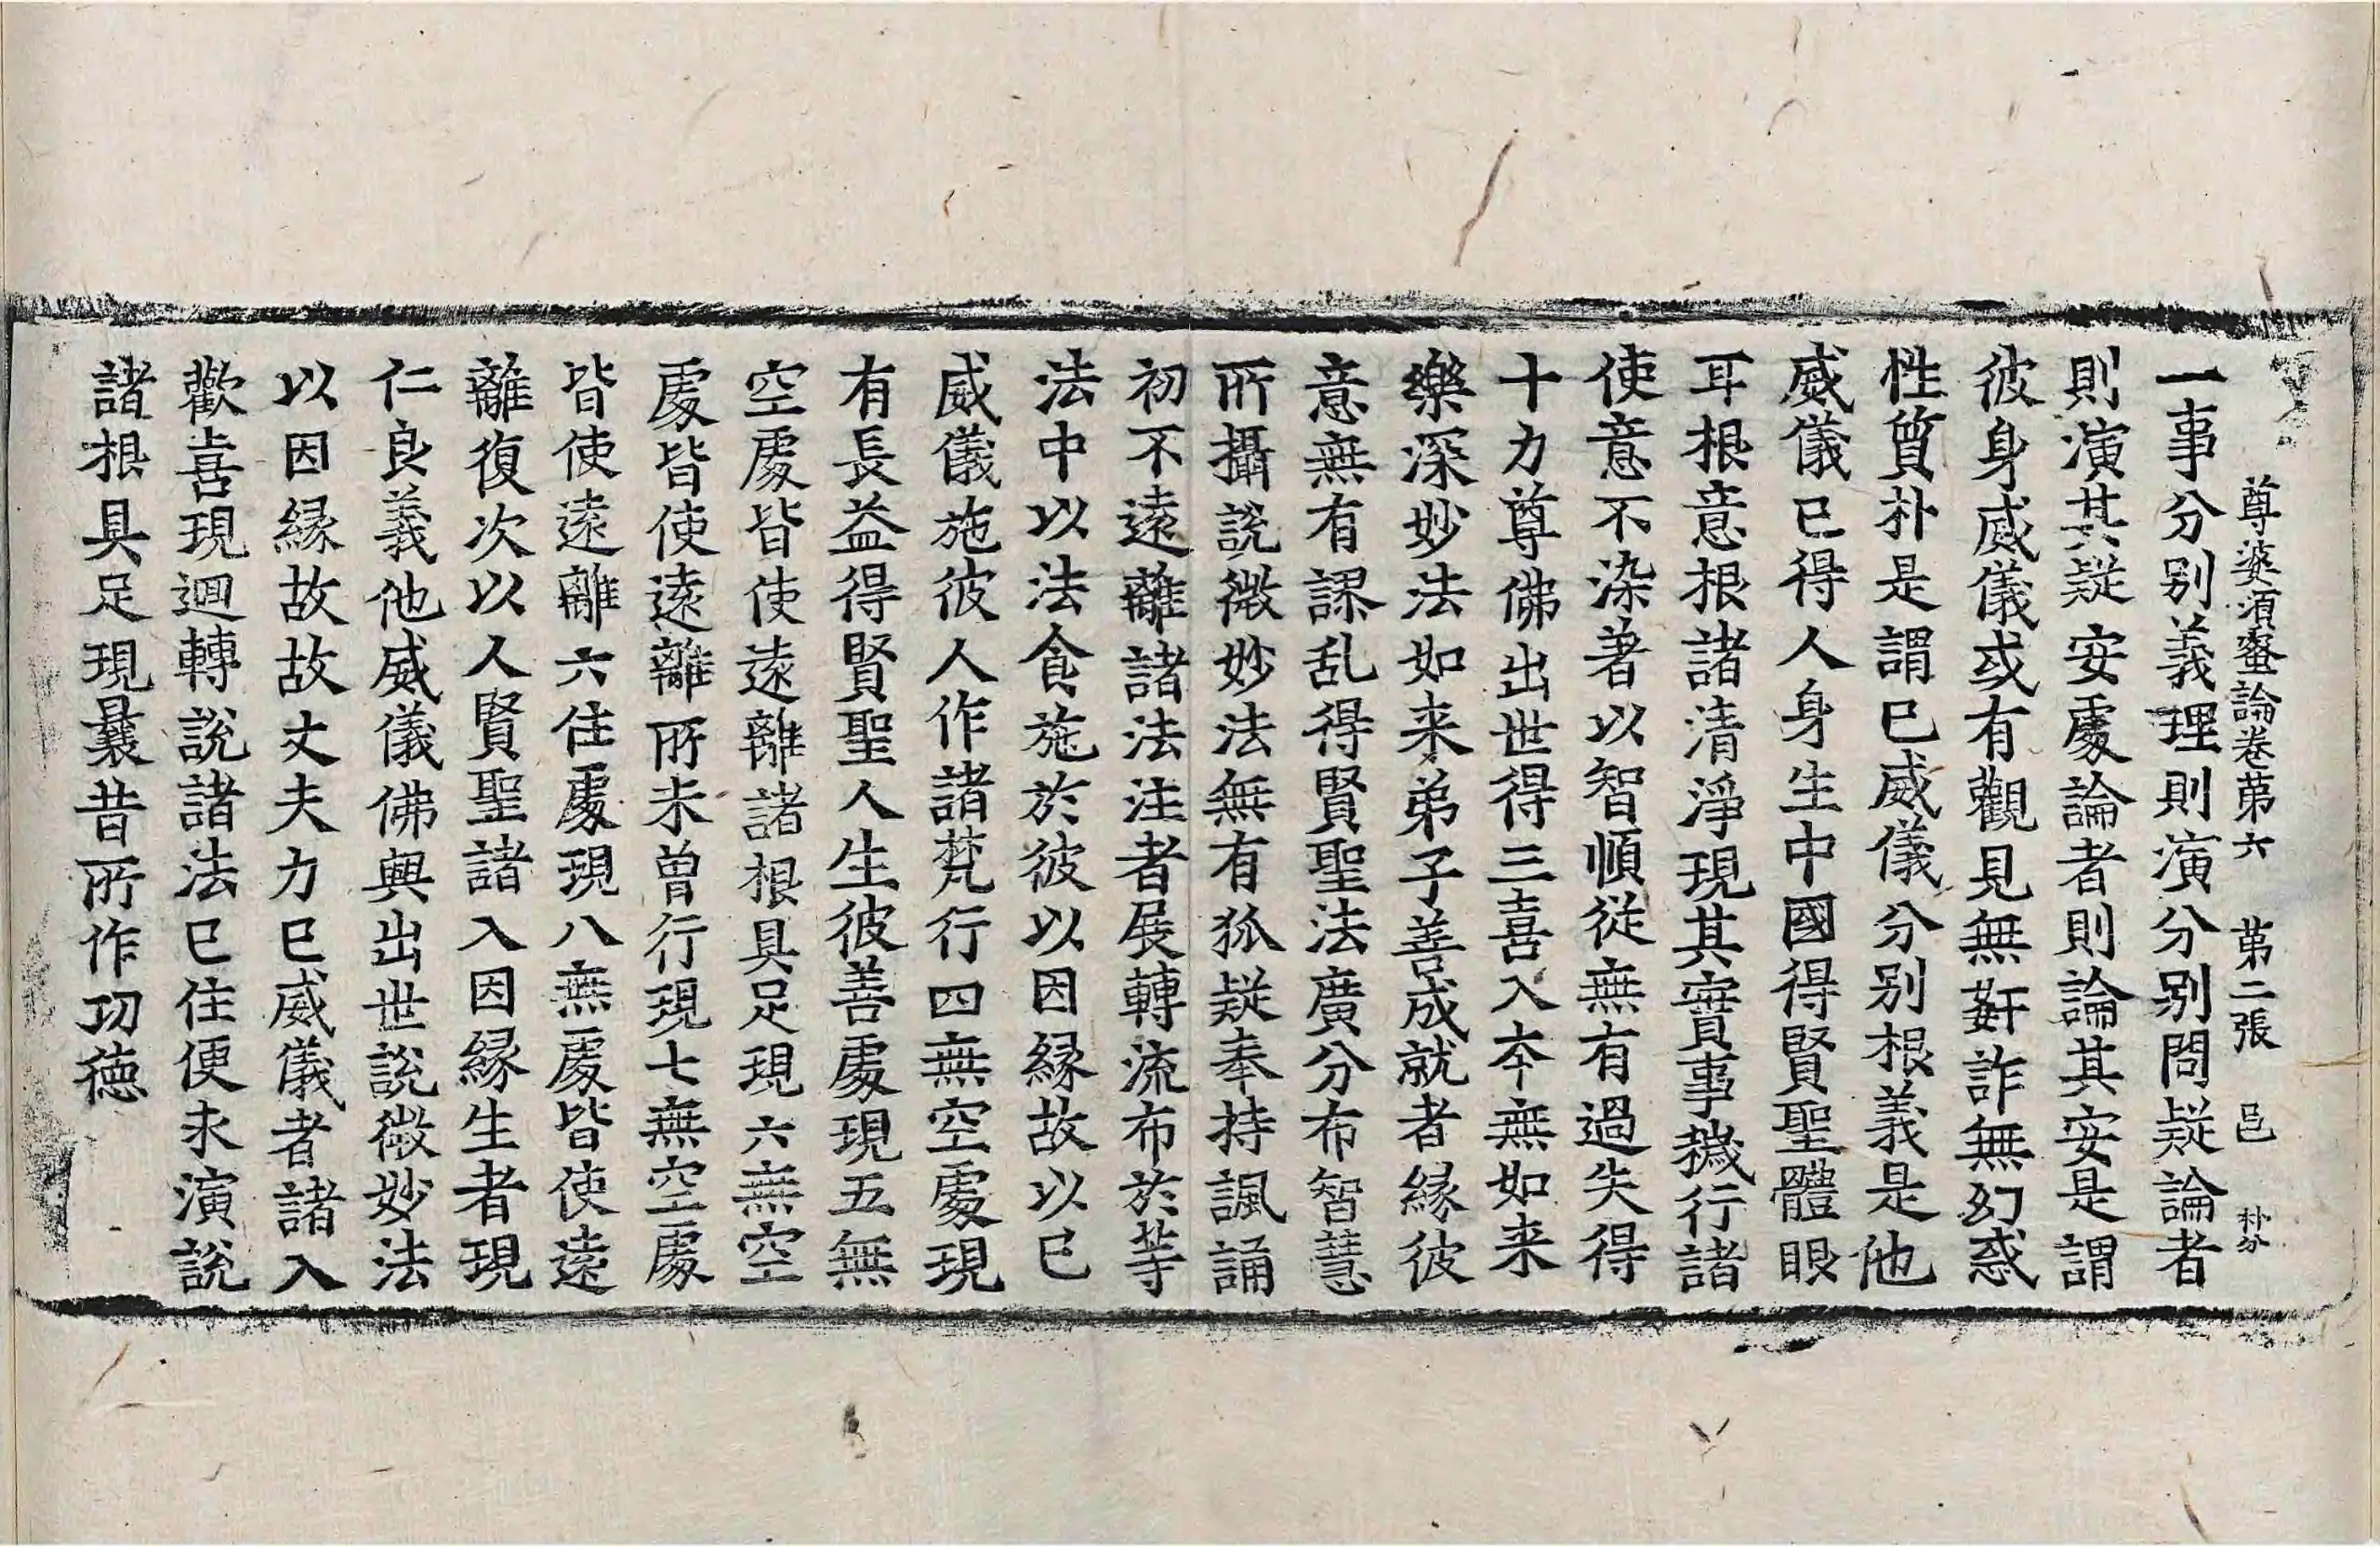 尊婆須蜜論卷苐六　苐二張　邑　朴分
一事分别義理則演分别問疑論者
則演其疑安處論者則論其安是謂
彼身威儀或有觀見無姧詐無幻惑
性質朴是謂巳威儀分别根義是他
威儀已得人身生中國得賢聖體眼
耳根意根諸清淨現其實事穢行諸
使意不染著以智順從無有過失得
十力尊佛出世得三喜入本無如来
樂深妙法如来弟子善成就者縁彼
意無有謬乱得賢聖法廣分布智慧
所攝說微妙法無有狐疑奉持諷誦
初不遠離諸法注者展轉流布於等
法中以法食施於彼以因縁故以巳
威儀施彼人作諸梵行四無空處現
有長益得賢聖人生彼善處現五無
空處皆使遠離諸根具足現六無空
處皆使遠離所未曾行現七無空處
皆使遠離六住處現八無處皆使遠
離復次以人賢聖諸入因縁生者現
仁良義他威儀佛興出世說微妙法
以因縁故故丈夫力巳威儀者諸入
歡喜現迴轉說諸法巳住便永演說
諸根具足現曩昔所作功德